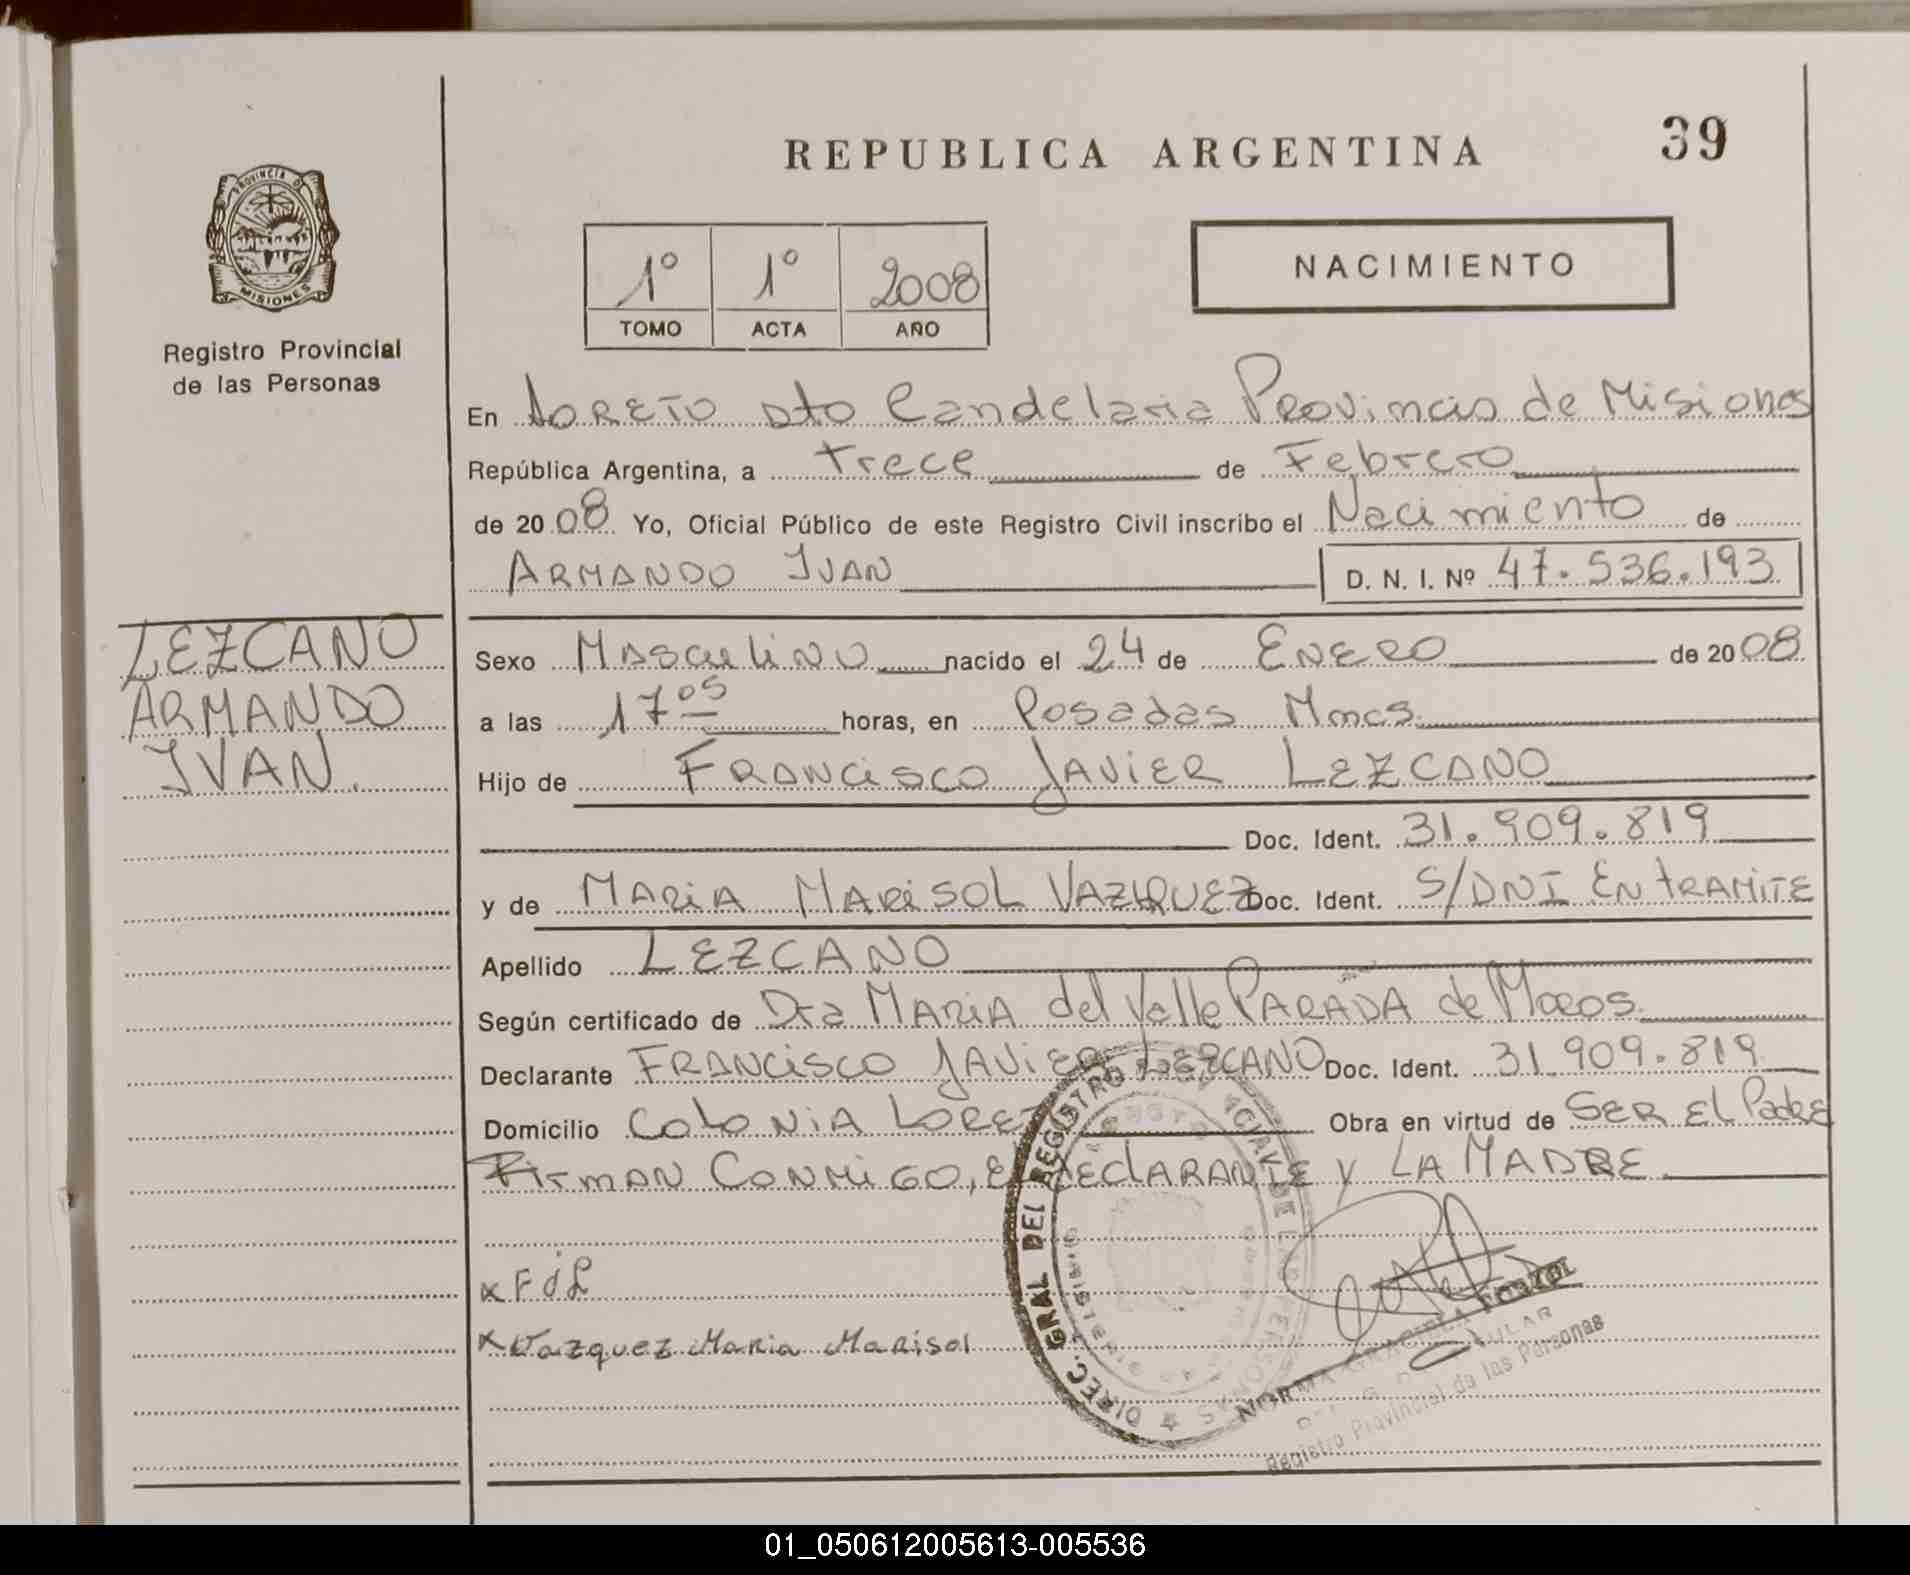 REPUBLICA ARGENTINA
39
PROVINCIA DE
MISIONES
Registro Provincial
de las Personas
1º 1º 2008
TOMO ACTA AÑO
NACIMIENTO
En LORETO Dto Candelaria Provincia de Misiones
República Argentina, a trece de Febrero
de 2008 Yo, Oficial Público de este Registro Civil inscribo el Nacimiento de
ARMANDO IVAN D. N. I. Nº 47.536.193
LEZCANO
ARMANDO
IVAN.
Sexo Masculino nacido el 24 de ENERO de 2008
a las 17 05 horas, en Posadas Mnes.
Hijo de FRANCISCO JAVIER LEZCANO
Doc. Ident. 31.909.819
y de MARIA MARISOL VAZQUEZ Doc. Ident. S/DNI EN TRAMITE
Apellido LEZCANO
Según certificado de Dra MARIA del Valle PARADA de
Declarante FRANCISCO JAVIER LEZCANO Doc. Ident. 31.909.819
Domicilio COLONIA LORETO Obra en virtud de SER El Padre
Firman CONMIGO, El DEClARANTE y LA MADRE
x FJL
x Vazquez Maria Marisol
DIREC. GRAL DEL REGISTRO DE LAS PERSONAS
NORMA GRACIELA
Registro Provincial de las Personas
01_050612005613-005536